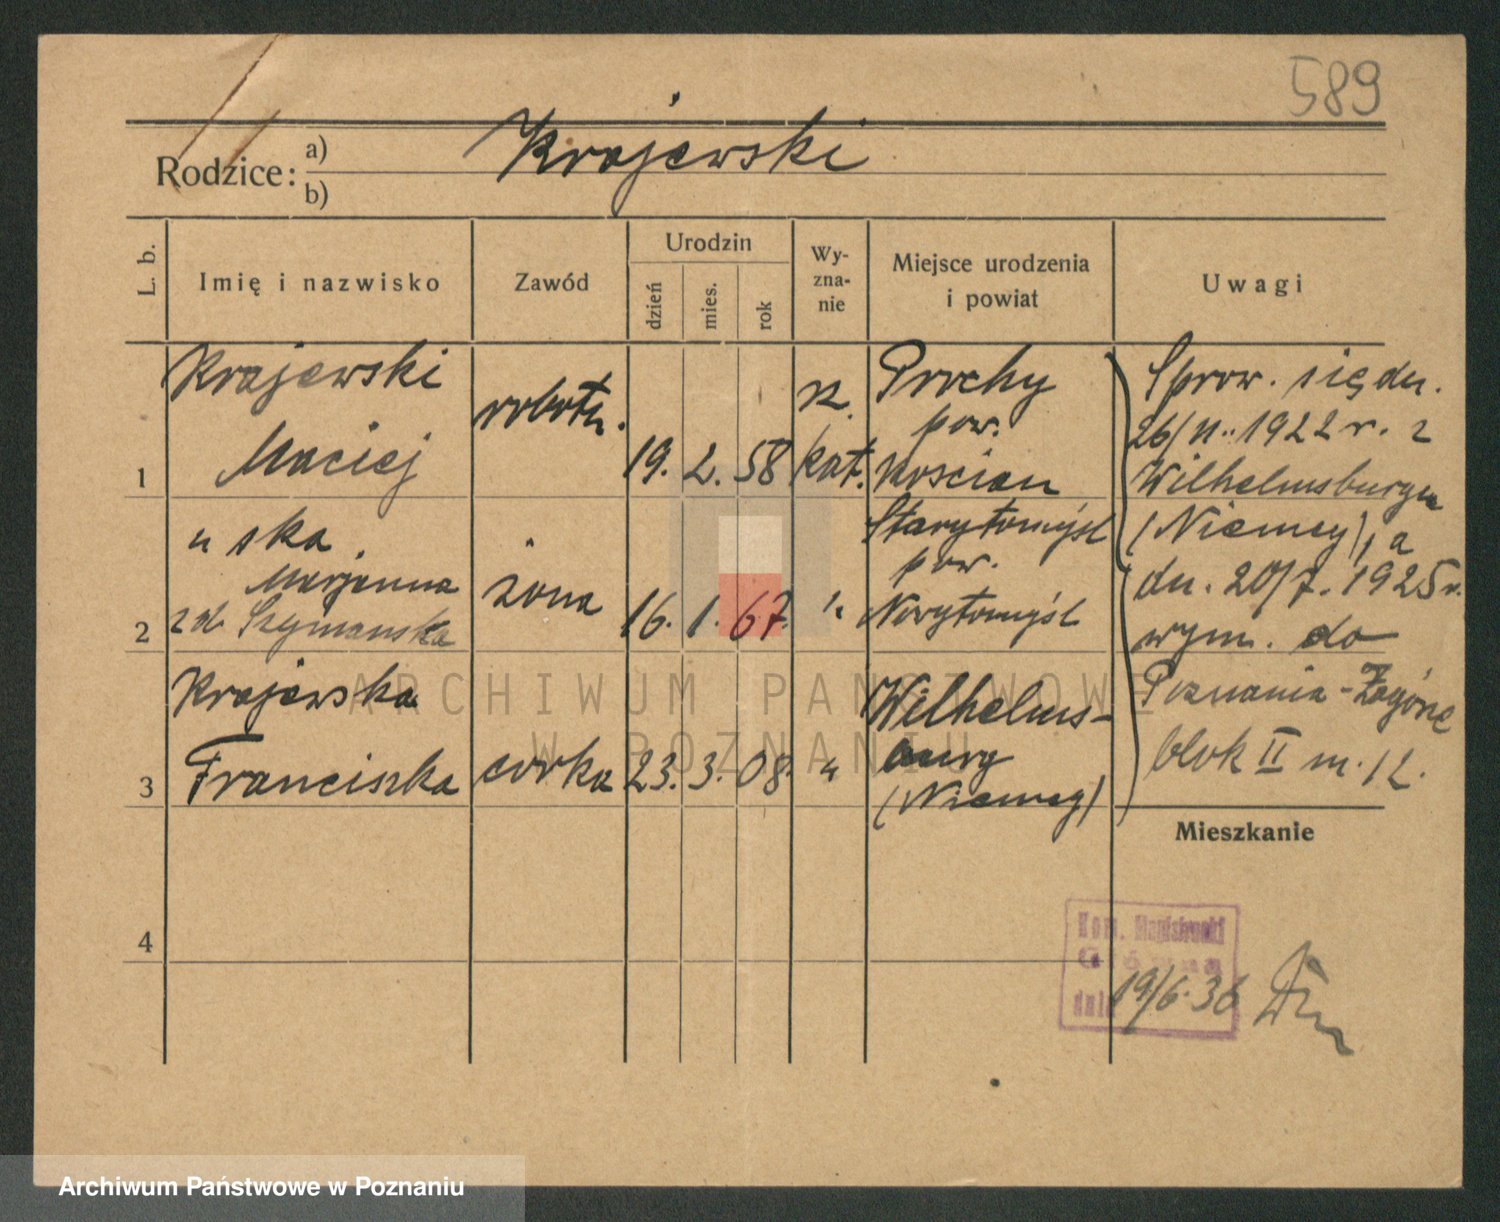 589
Krajewski
Rodzice: a)
b)
L. b.
Imię i nazwisko
Zawód
Urodzin
dzień
mies.
rok
Wy-
zna-
nie
Miejsce urodzenia
i powiat
Uwagi
1
Krajewski
Maciej
robotn.
19. 2. 58
rz.
kat.
Prochy
pow.
Kościan
2
" ska
Marjanna
zd. Szymanska
żona
16. 1. 67.
"
Starytomyśl
pow.
Nowytomyśl
3
Krajewska
Franciszka
corka
23. 3. 08.
"
Wilhelms-
burg
(Niemcy)
Sprow. się dn.
1922 r. z
Wilhelmsburgu
(Niemcy), a
dn. 20/7. 1925 r.
wym. do
Poznania - Zagórze
blok II m. 12.
Mieszkanie
4
Kom. Magistracki
Główna
dnia 19/6. 36
ARCHIWUM PAŃSTWOWE
W POZNANIU
Archiwum Państwowe w Poznaniu